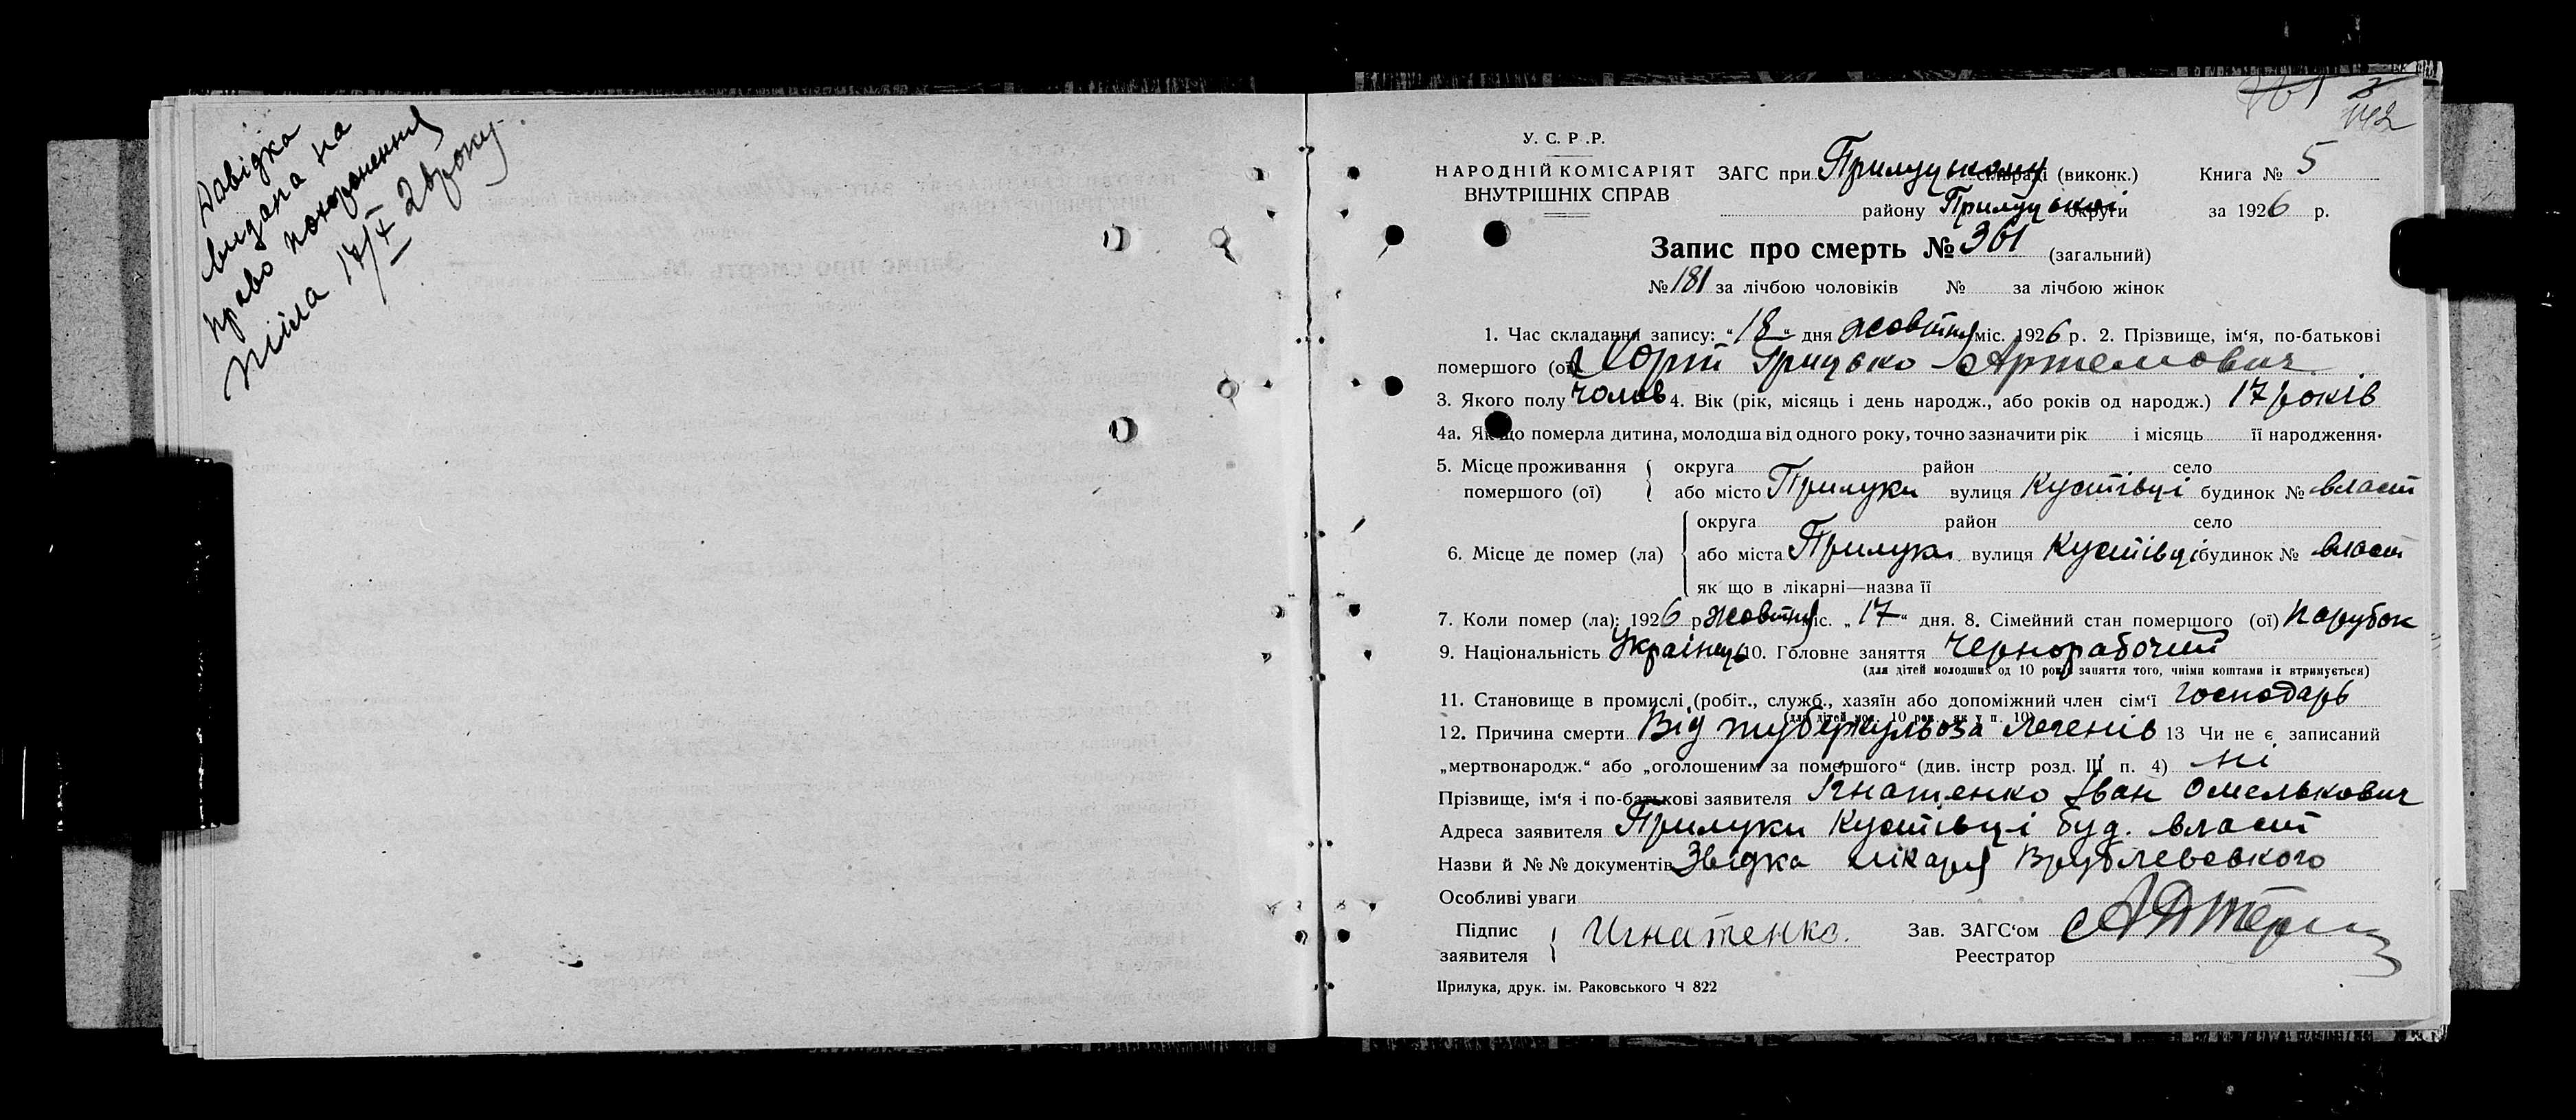 Довідка
видана на
право похоронення
тіла 17/X 26 року.
361
У. С. Р. Р.
НАРОДНІЙ КОМІСАРІЯТ
ВНУТРІШНІХ СПРАВ
ЗАГС при Прилуцькому (виконк.) Книга № 5
району Прилуцької округи за 1926 р.
Запис про смерть № 361 (загальний)
№ 181 за лічбою чоловіків № за лічбою жінок
1. Час складання запису: "18" дня жовтня міс. 1926 р. 2. Прізвище, ім'я, по-батькові
помершого (ої) Хорт Грицько Артемович
3. Якого полу чолов 4. Вік (рік, місяць і день народж., або років од народж.) 17 років
4а. Якщо померла дитина, молодша від одного року, точно зазначити рік і місяць її народження.
5. Місце проживання помершого (ої) { округа район село
або місто Прилуки вулиця Кустівці будинок № власт
6. Місце де помер (ла) { округа район село
або міста Прилуки вулиця Кустівці будинок № власт
як що в лікарні—назва її
7. Коли помер (ла): 1926 р. жовтня міс. „17" дня. 8. Сімейний стан помершого (ої) парубок
9. Національність Українець 10. Головне заняття Чернорабочий
(для дітей молодших од 10 років заняття того, чиїми коштами їх втримується)
11. Становище в промислі (робіт., служб., хазяїн або допоміжний член сім'ї господарь
(для дітей мол. 10 рок., як у п. 10)
12. Причина смерти Від туберкульоза легенів 13 Чи не є записаний
„мертвонародж." або „оголошеним за помершого" (див. інстр розд. III п. 4) ні
Прізвище, ім'я і по-батькові заявителя Ігнатенко Іван Омелькович
Адреса заявителя Прилуки Кустівці буд. власт
Назви й № № документів Звідка лікаря Врублевського
Особливі уваги
Підпис заявителя { Игнатенко. Зав. ЗАГС'ом
Реестратор
Прилука, друк. ім. Раковського Ч 822